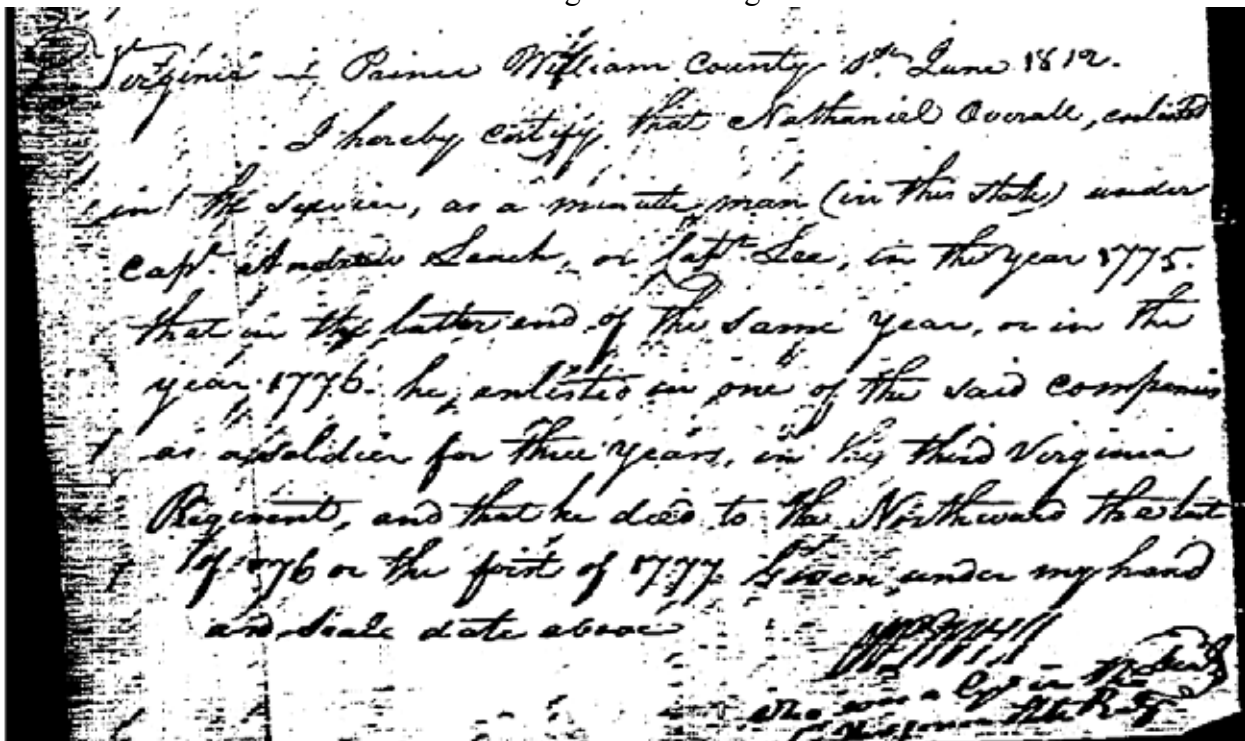 Virginia Prince William County June 1812.
I hereby certify that Nathaniel Overall, enlisted
in the Service, as a minute man (in this State) under
Capt. Andrew Leach, or Capt. Lee, in the year 1775.
that in the latter end of the same year, or in the
year 1776. he, enlisted in one of the said Companies
as a Soldier for three years, in the third Virginia
Regiment, and that he died to the Northward the last
of 1776 or the first of 1777. Given under my hand
and Seale date above
who was a in the